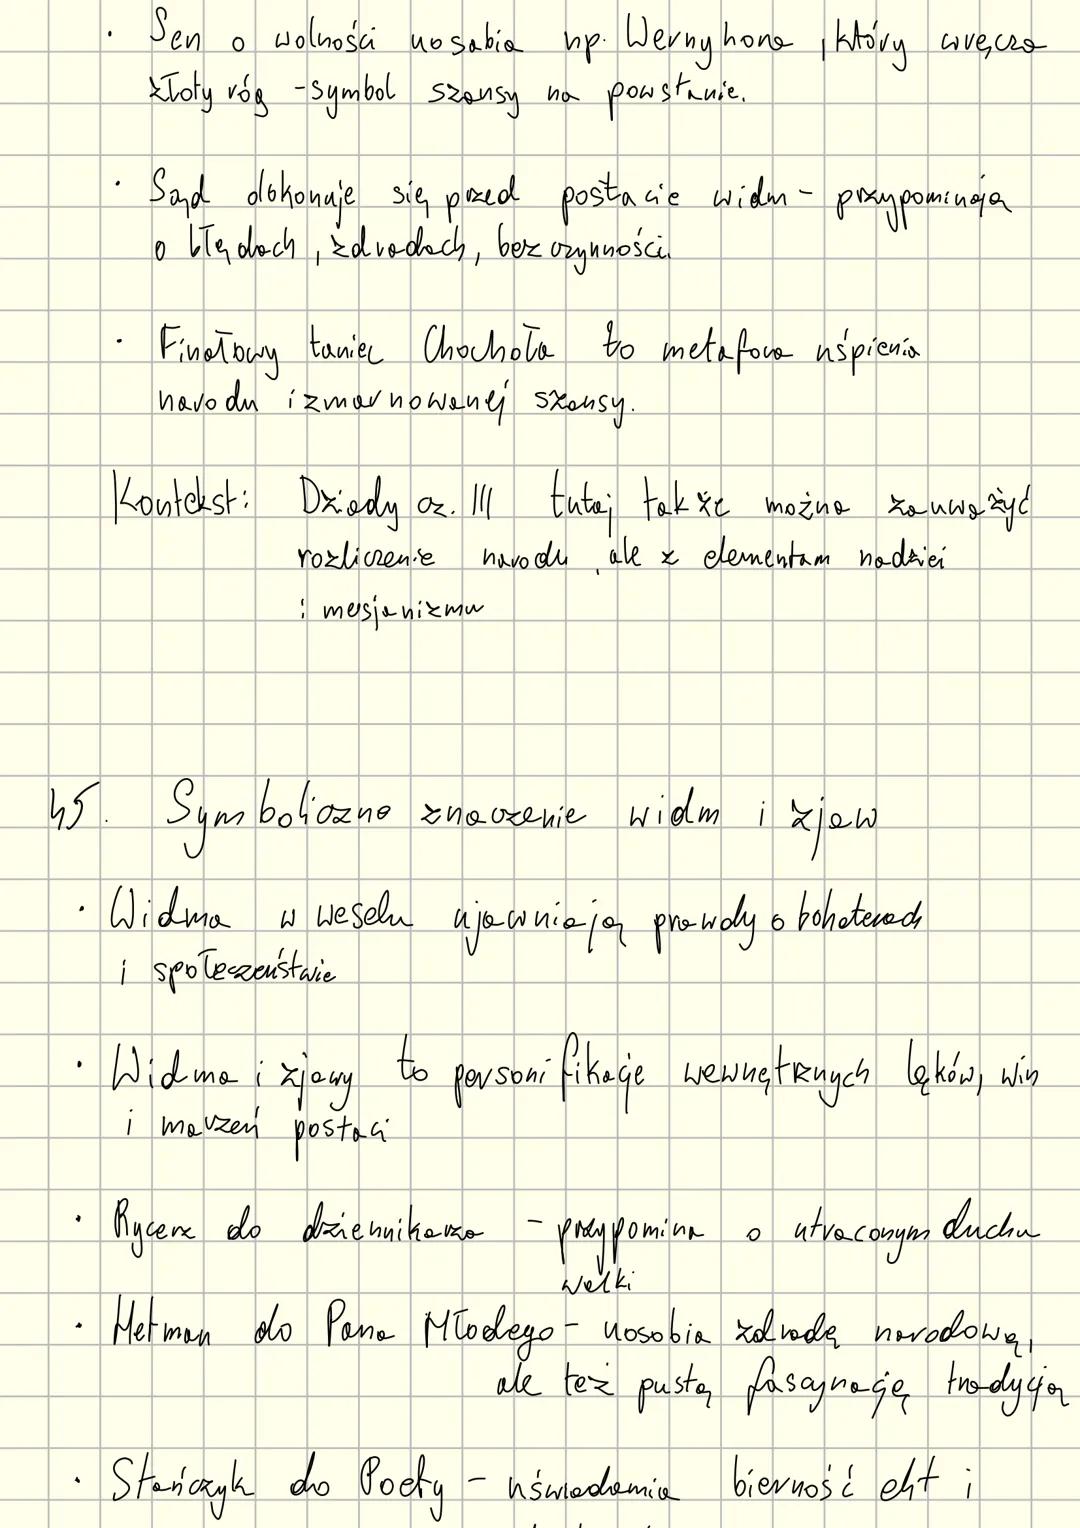 · Sen o wolności uosabia np. Wernyhora, który wręcza
złoty róg - symbol szansy na powstanie.
· Sąd dokonuje się przed postacie widm - przypominają
o błędach, zdradach, bezczynności.
· Finałowy taniec Chochoła to metafora uśpienia
narodu i zmarnowanej szansy.
Kontekst: Dziady cz. III tutaj także można zauważyć
rozliczenie narodu, ale z elementam nadziei
i mesjanizmu
45. Symboliczne znaczenie widm i zjaw
· Widma w weselu ujawniają prawdy o bohaterach
i społeczeństwie
· Widma i zjawy to personifikacje wewnętrznych lęków, win
i marzeń postaci
· Rycerz do dziennikarza - przypomina o utraconym duchu
walki
· Hetman do Pana Młodego - uosabia zdradę narodową,
ale też pustą fascynację tradycją
· Stańczyk do Poety - uświadamia bierność elit i